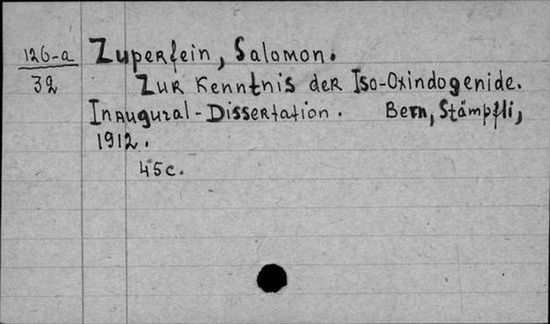 126-a Zuperfein, Salomon.
32 Zur Kenntnis der Iso-Oxindogenide.
Inaugural-Dissertation. Bern, Stämpfli,
1912.
45c.